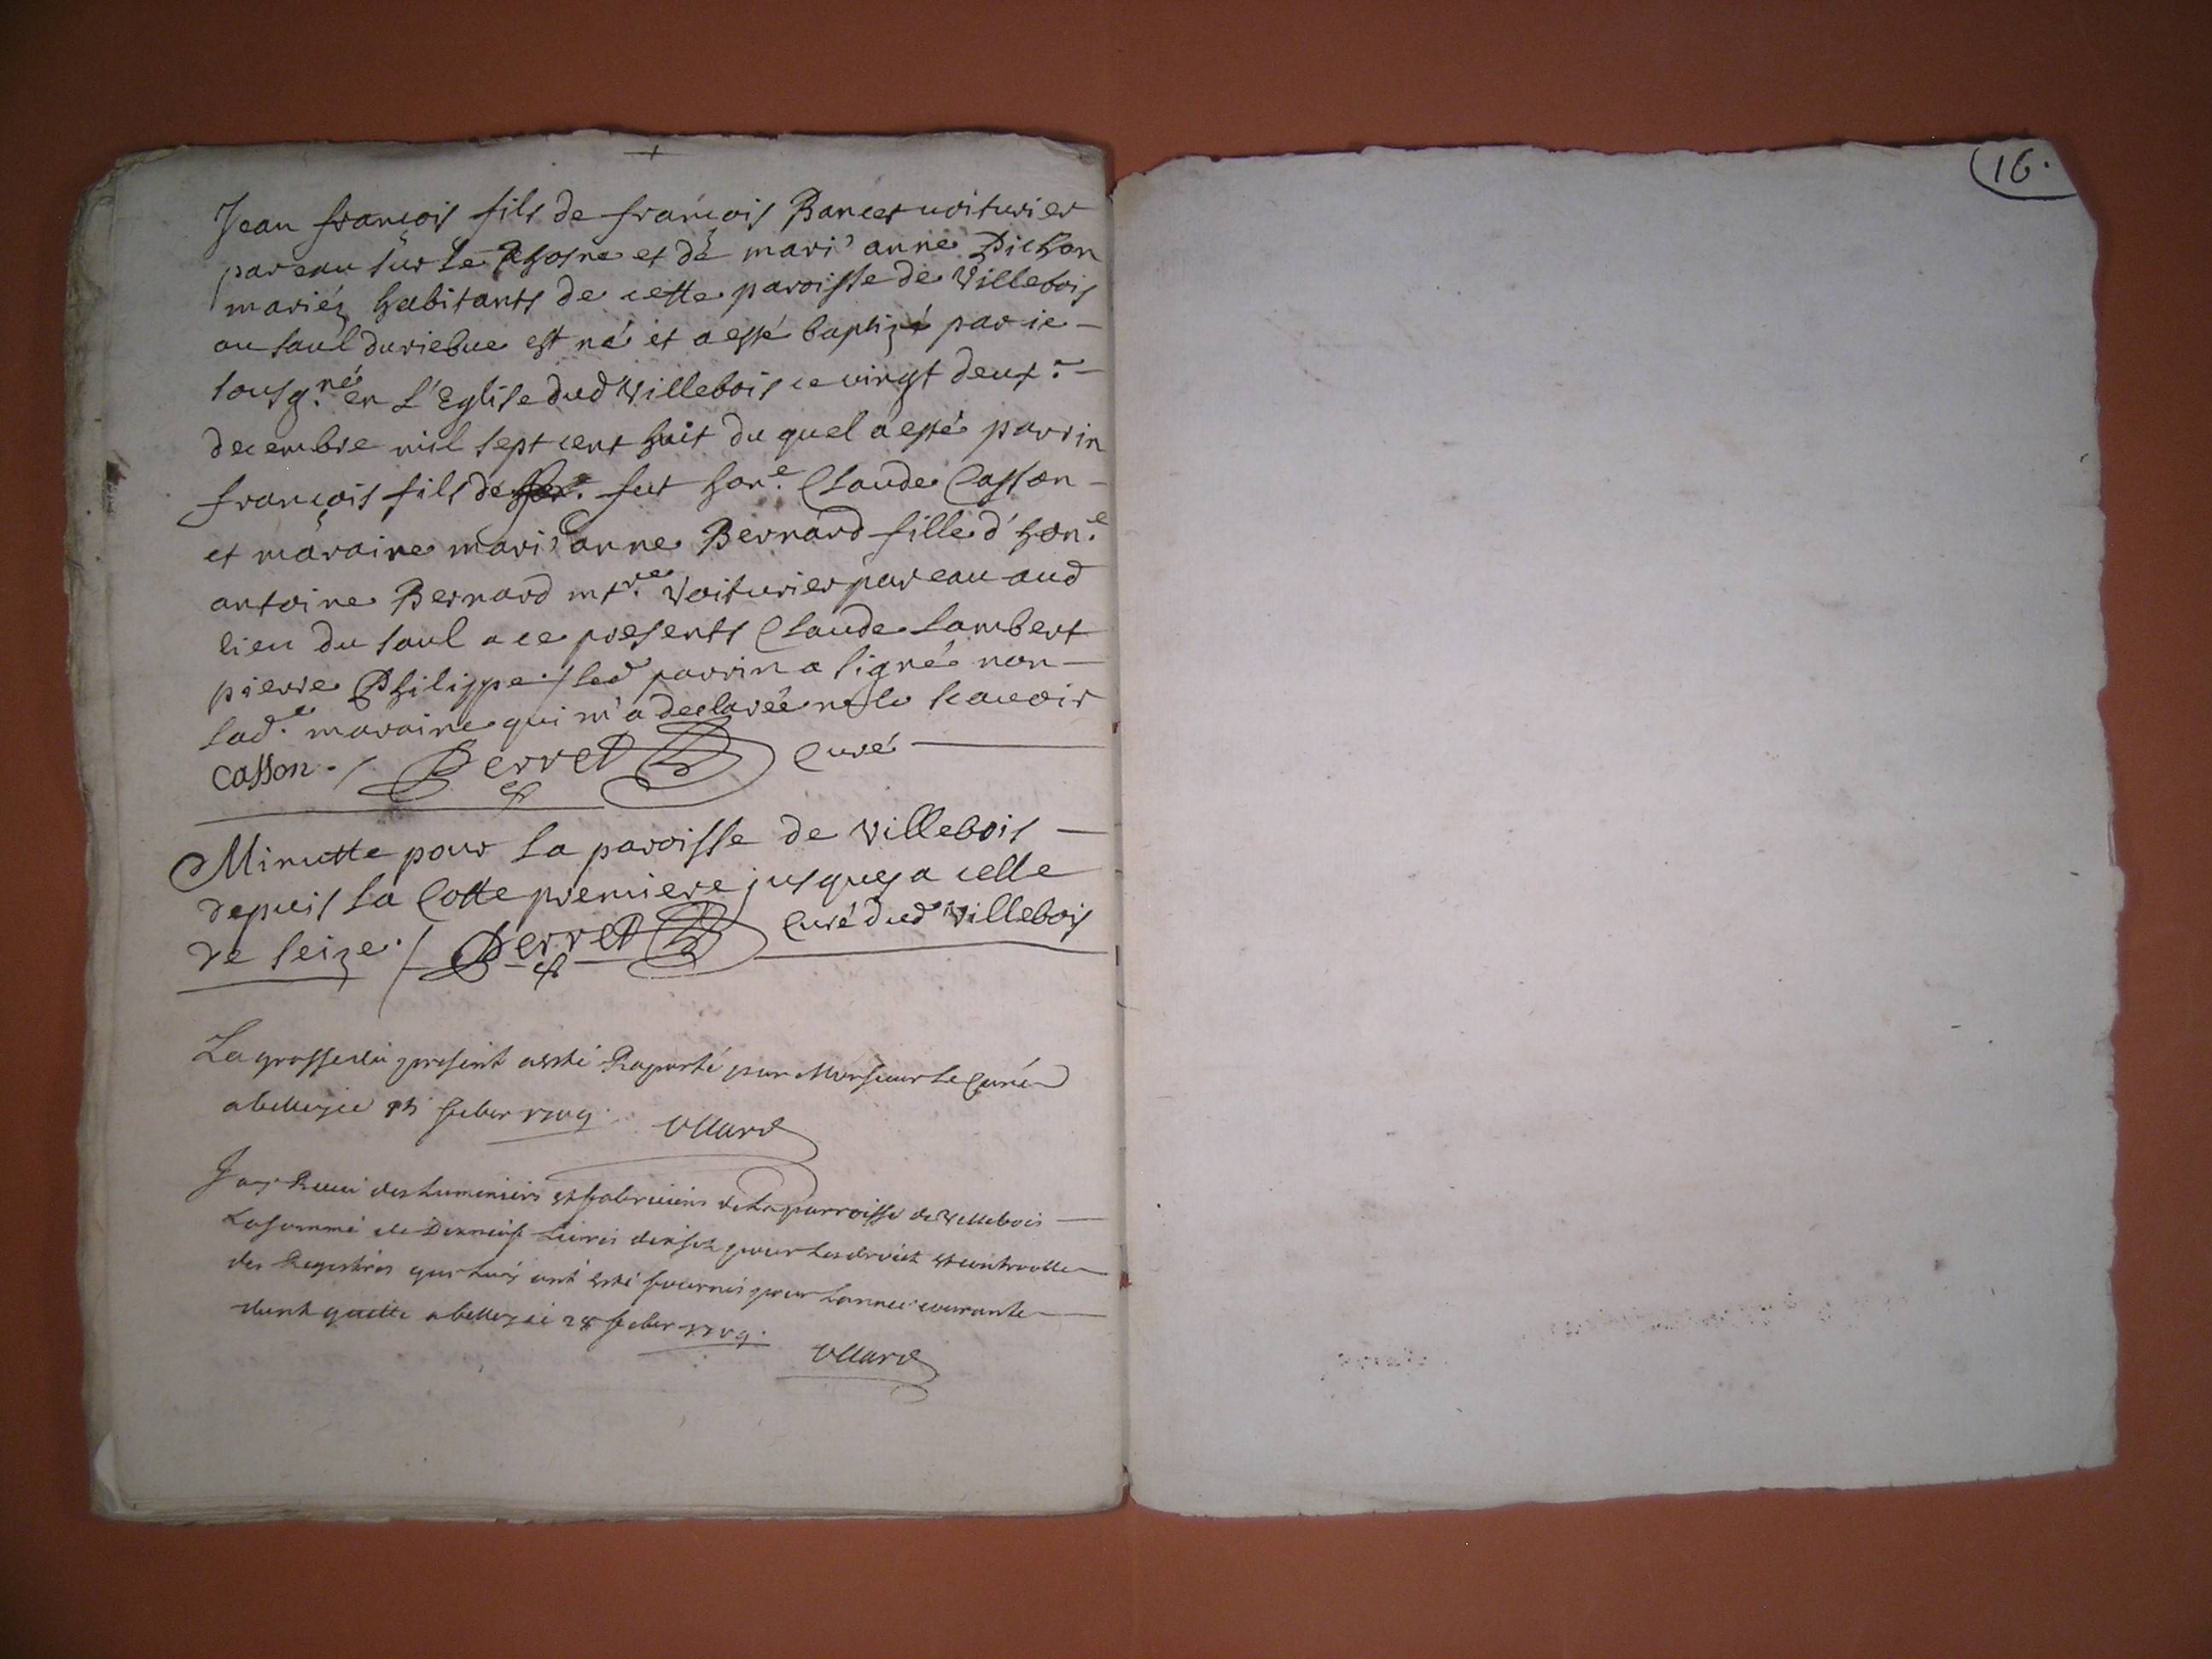 16.
Jean françois fils de françois Bancet voiturier
par eau sur le Rhosne et de mari'anne Pichon
mariéz habitants de cette paroisse de Villebois
au Saul duriebue est né et a esté baptizé par ie
sousg.né en L'Eglise dud Villebois ce vingt deux.e
decembre mil sept cent huit du quel a esté parrin
françois fils de feu hon.e Claude Casson
et maraine mari'anne Bernard fille d'hon.e
antoine Bernard mt.re Voiturier par eau aud
lieu du Saul a ce presents Claude Lambert
pierre Philippe ./ led parrin a signé non
lad.e maraine qui m'a declarée ne le scavoir
Casson ./ Perret Curé
Minutte pour la paroisse de Villebois
depuis la Cotte premiere jusques a celle
de seize ./ Perret Curé dud Villebois
La grosse du present a esté Raporté par Monsieur le Curé
a belley ce feber 1709. Ollard
Jay Receu des Luminiers et fabriciens de la parroisse de Villebois
La somme de Livres dix sols pour les droict et controlle
des Registres que leurs ont esté fournis pour Lannée courante
dont quitte a belley ce 28 feber 1709.
Ollard